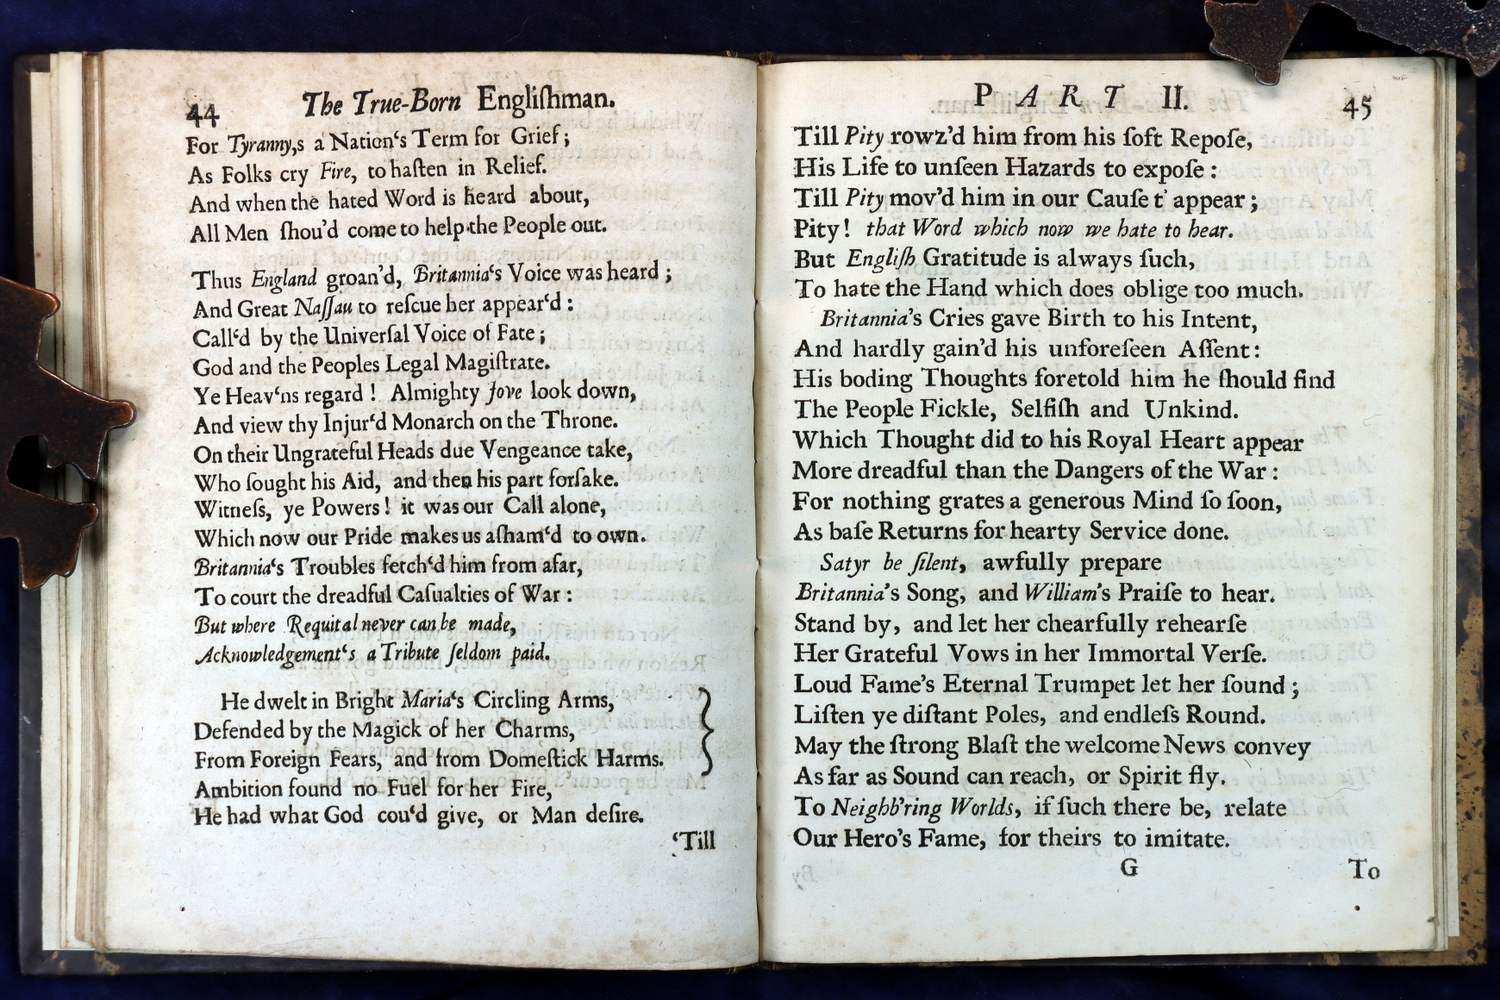 44 The True-Born Engliſhman.
For Tyranny,s a Nation‘s Term for Grief;
As Folks cry Fire, to haſten in Relief.
And when the hated Word is heard about,
All Men ſhou’d come to help the People out.
Thus England groan’d, Britannia‘s Voice was heard;
And Great Naſſau to reſcue her appear‘d:
Call‘d by the Univerſal Voice of Fate;
God and the Peoples Legal Magiſtrate.
Ye Heav‘ns regard! Almighty Jove look down,
And view thy Injur‘d Monarch on the Throne.
On their Ungrateful Heads due Vengeance take,
Who ſought his Aid, and then his part forſake.
Witneſs, ye Powers! it was our Call alone,
Which now our Pride makes us aſham‘d to own.
Britannia‘s Troubles fetch‘d him from afar,
To court the dreadful Caſualties of War:
But where Requital never can be made,
Acknowledgement‘s a Tribute ſeldom paid.
He dwelt in Bright Maria‘s Circling Arms,
Defended by the Magick of her Charms,
From Foreign Fears, and from Domeſtick Harms.
Ambition found no Fuel for her Fire,
He had what God cou‘d give, or Man deſire.
‘Till
PART II. 45
Till Pity rowz’d him from his ſoft Repoſe,
His Life to unſeen Hazards to expoſe:
Till Pity mov’d him in our Cauſe t’ appear;
Pity! that Word which now we hate to hear.
But Engliſh Gratitude is always ſuch,
To hate the Hand which does oblige too much.
Britannia’s Cries gave Birth to his Intent,
And hardly gain’d his unforeſeen Aſſent:
His boding Thoughts foretold him he ſhould find
The People Fickle, Selfiſh and Unkind.
Which Thought did to his Royal Heart appear
More dreadful than the Dangers of the War:
For nothing grates a generous Mind ſo ſoon,
As baſe Returns for hearty Service done.
Satyr be ſilent, awfully prepare
Britannia’s Song, and William’s Praiſe to hear.
Stand by, and let her chearfully rehearſe
Her Grateful Vows in her Immortal Verſe.
Loud Fame’s Eternal Trumpet let her ſound;
Liſten ye diſtant Poles, and endleſs Round.
May the ſtrong Blaſt the welcome News convey
As far as Sound can reach, or Spirit fly.
To Neighb’ring Worlds, if ſuch there be, relate
Our Hero’s Fame, for theirs to imitate.
G To